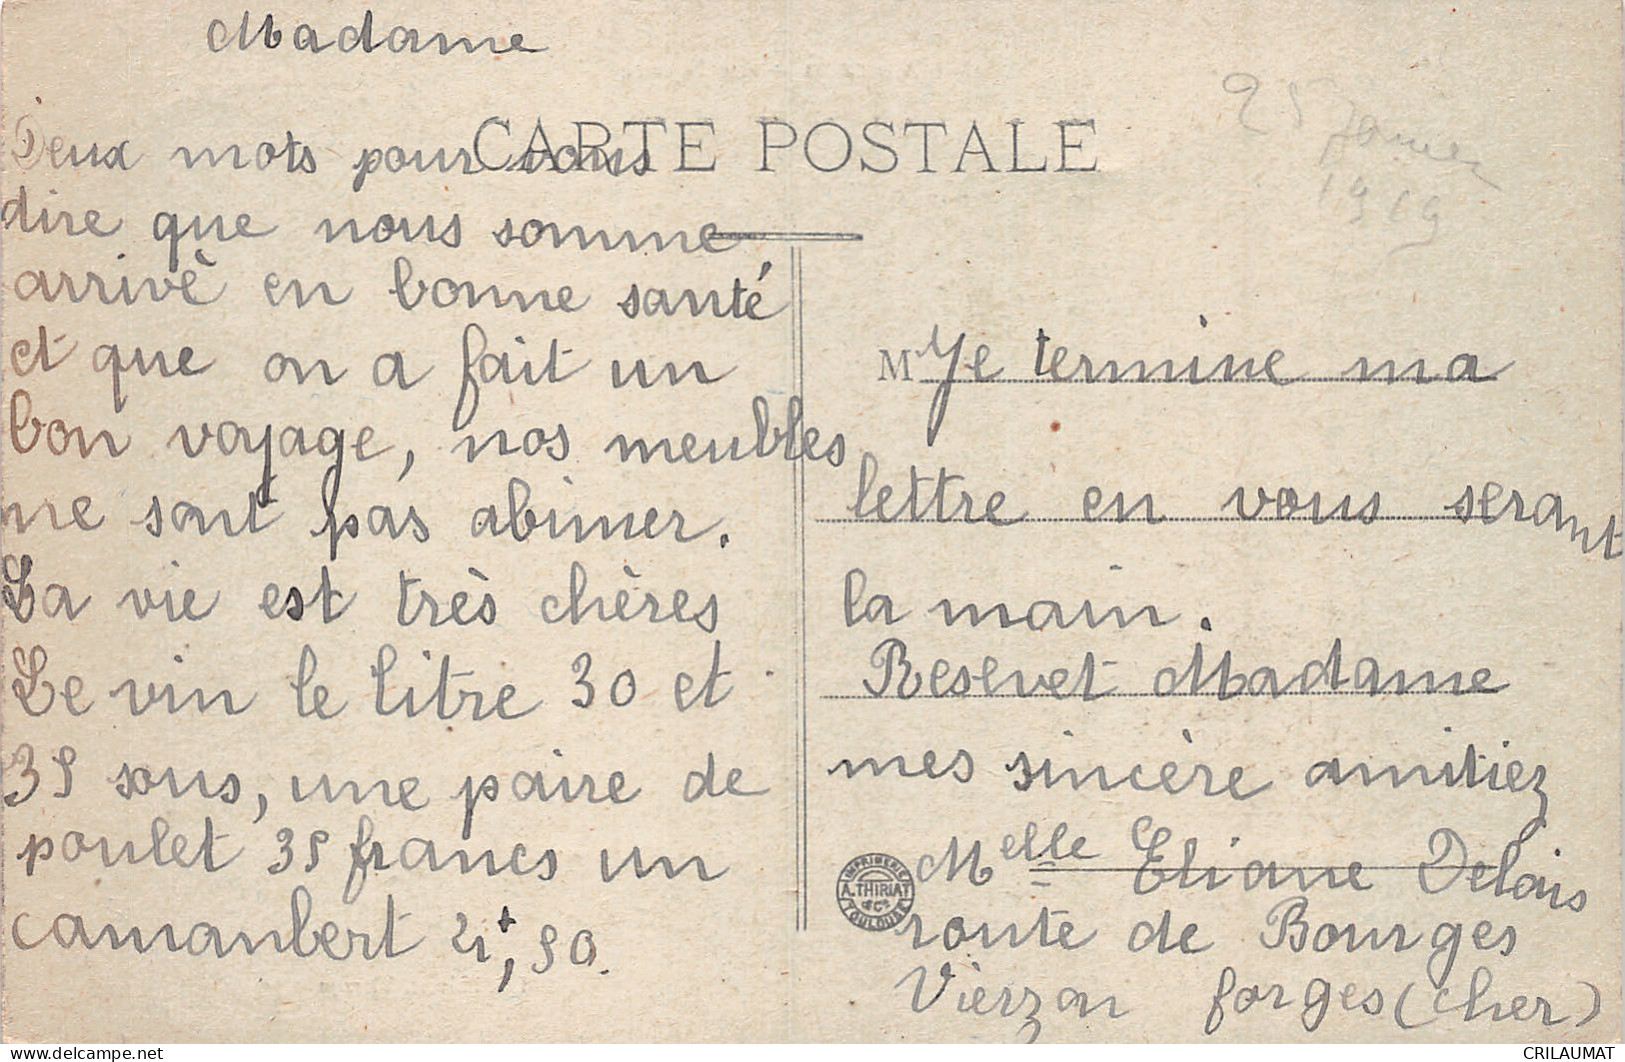 Madame
CARTE POSTALE
25 Janvier
1919
Deux mots pour vous
dire que nous somme
arrivè en bonne santé
et que on a fait un
bon voyage, nos meubles
ne sont pas abimer.
La vie est très chères
Le vin le litre 30 et
35 sous, une paire de
poulet 35 francs un
camanbert 4f,50.
M Je termine ma
lettre en vous serant
la main.
Resevet Madame
mes sincère amitiez
Melle Eliane Delais
route de Bourges
Vierzon forges (Cher)
IMPRIMERIE
A. THIRIAT
& Cie
TOULOUSE
CRILAUMAT